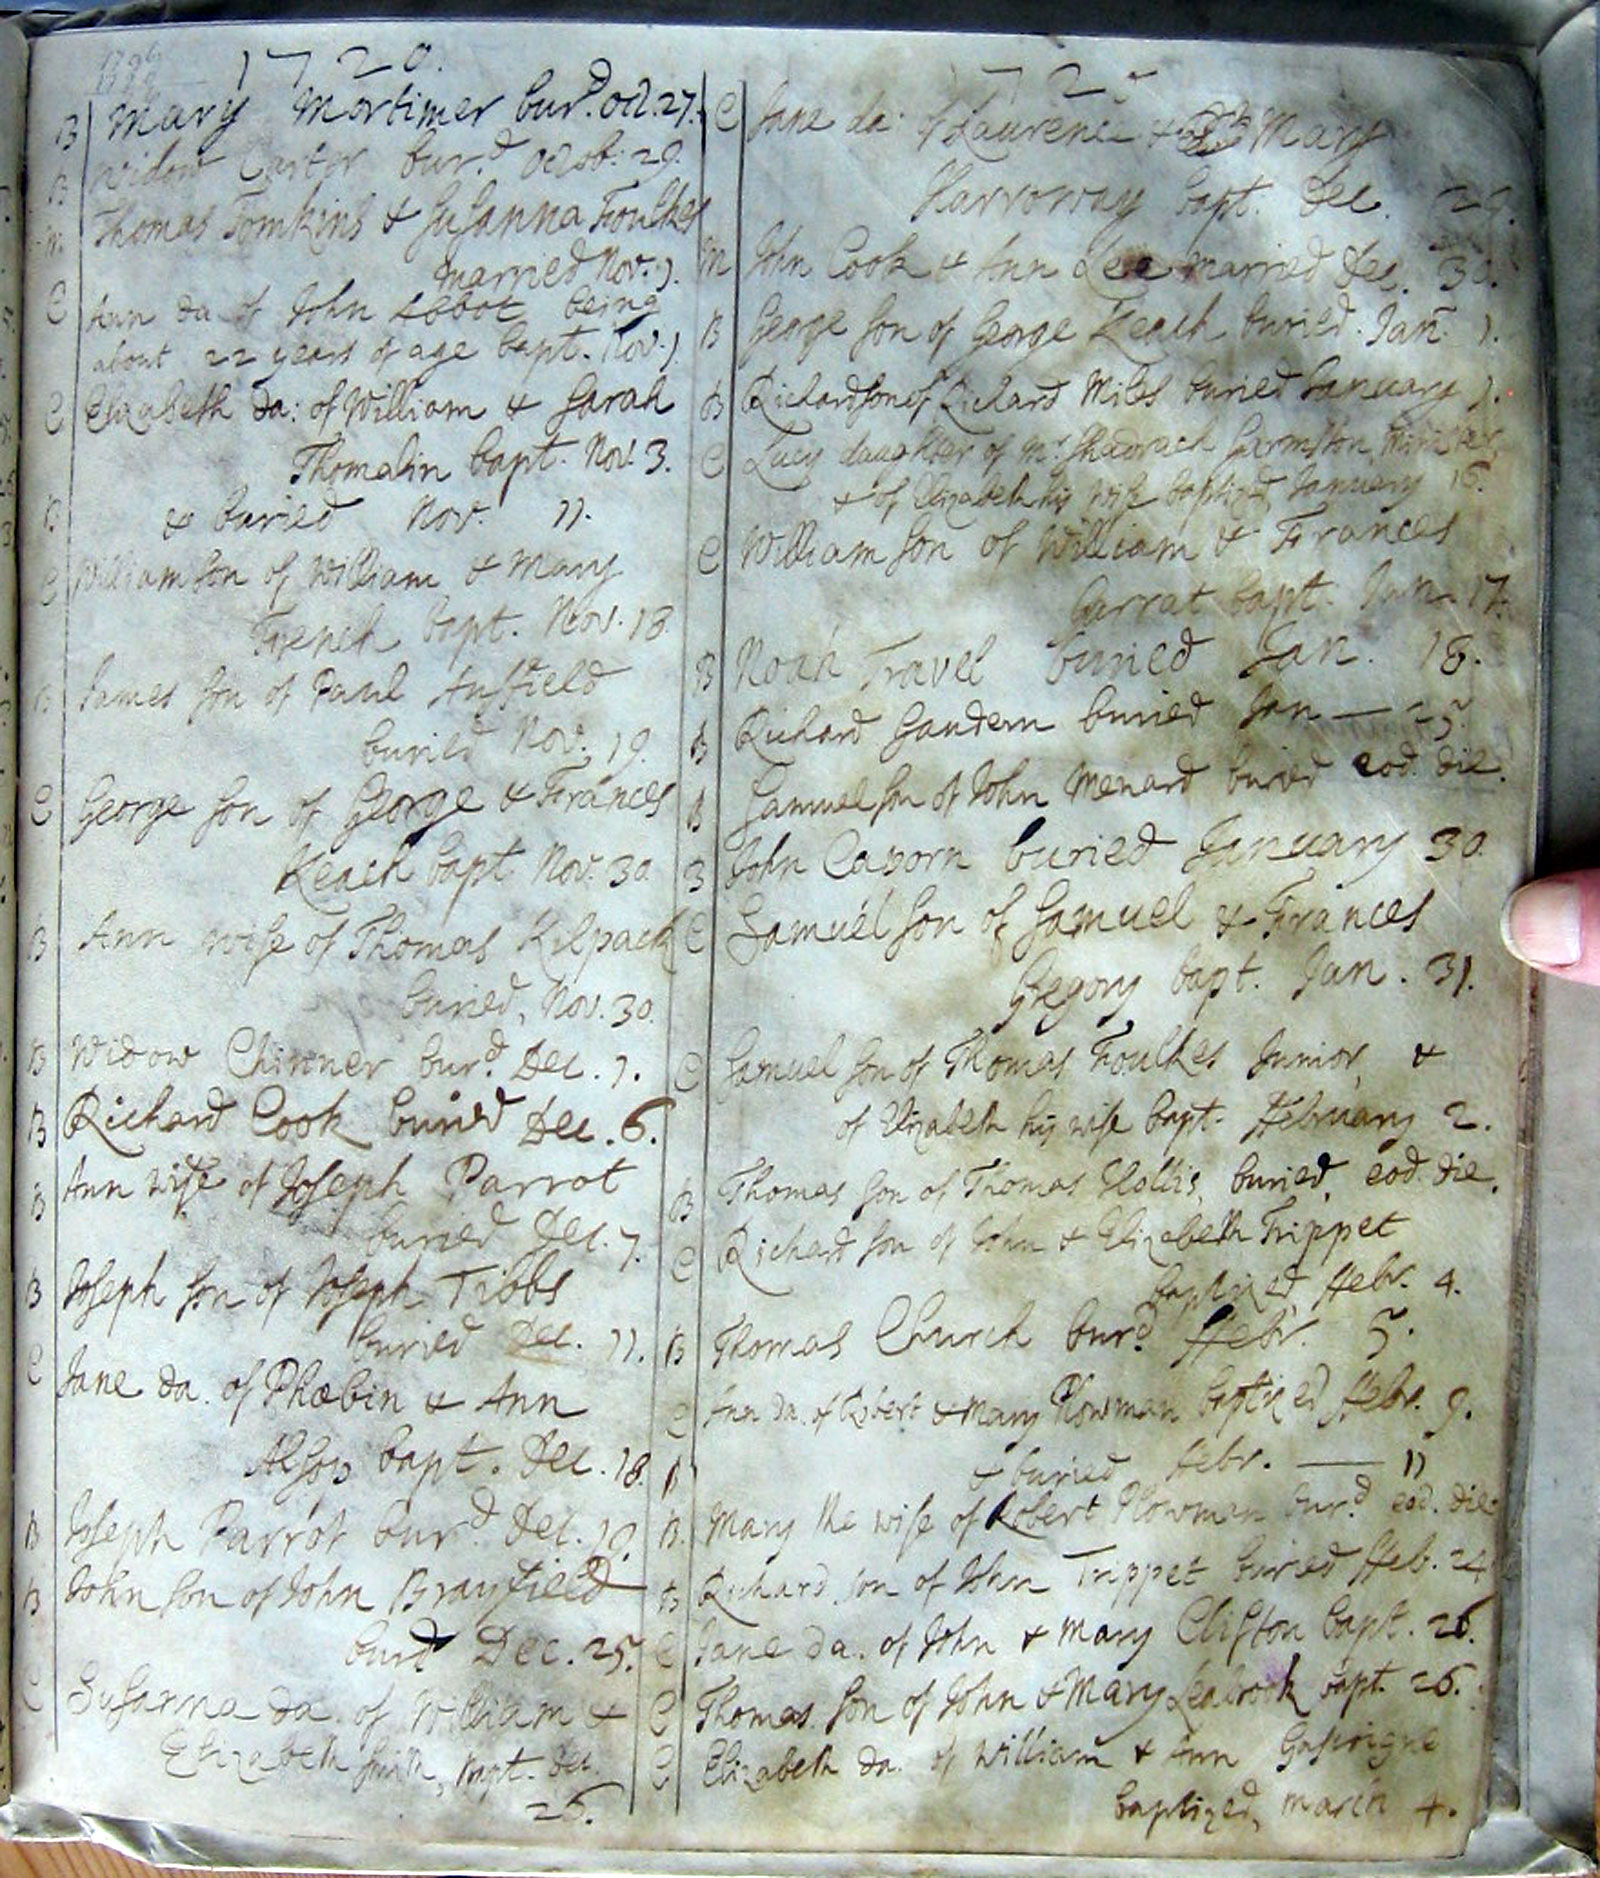 1720.
B Mary Mortimer bur.d Oct. 27.
B Widow Carter bur.d Octob: 29.
M Thomas Tomkins & Susanna Foulkes
married Nov. 1.
C Ann da of John Abbot being
about 22 years of age bapt. Nov. 1
C Elizabeth da: of William & Sarah
Thomalin bapt. Nov. 3.
B & buried Nov. 11.
C William son of William & Mary
French bapt. Nov. 18
B James son of Paul
buried Nov. 19.
C George son of George & Frances
Keach bapt Nov. 30
B Ann wife of Thomas Kilpack
buried, Nov. 30.
B Widow Chinner bur.d Dec. 1.
B Richard Cook buried Dec. 6.
B Ann wife of Joseph Parrot
buried Dec. 7.
B Joseph son of Joseph Tibbs
buried Dec. 11.
C Jane da. of Phœbin & Ann
Alsop bapt. Dec. 18.
B Joseph Parrot bur.d Dec. 19.
B John son of John Brayfield
burd Dec. 25.
C Susanna da. of William &
Elizabeth Smith, bapt. Dec.
26.
172
C Jane da: of Laurence & Mary
Harroway bapt. Dec. 29.
M John Cook & Ann Lee married Dec. 30.
B George son of George Keach buried. Jan 1.
B Richard son of Richard Miles buried January 1.
C Lucy daughter of Mr Shadrach Garmston, Minister,
& of Elizabeth his wife baptized January 16.
C William son of William & Frances
Garrat bapt. Jan. 17.
B Noah Travel buried Jan. 18.
B Richard Gaudern buried Jan — 25
B Samuel son of John Menard buried eod. die.
B John Cavorn buried January 30.
C Samuel son of Samuel & Frances
Gregory bapt. Jan. 31.
C Samuel son of Thomas Foulkes Junior, &
of Elizabeth his wife bapt. February 2.
B Thomas son of Thomas Hollis, buried, eod. die.
C Richard son of John & Elizabeth Trippet
baptized, Febr. 4.
B Thomas Church bur.d Febr. 5.
C Ann da. of Robert & Mary Plowman baptized Febr. 9.
B & buried Febr. — 11
B. Mary the wife of Robert Plowman bur.d eod. die
B Richard son of John Trippet buried Feb. 24
C Jane da. of John & Mary Clifton bapt. 26.
C Thomas son of John & Mary Seabrook bapt. 26.
C Elizabeth da. of William & Ann Gascoigne
baptized, March 4.